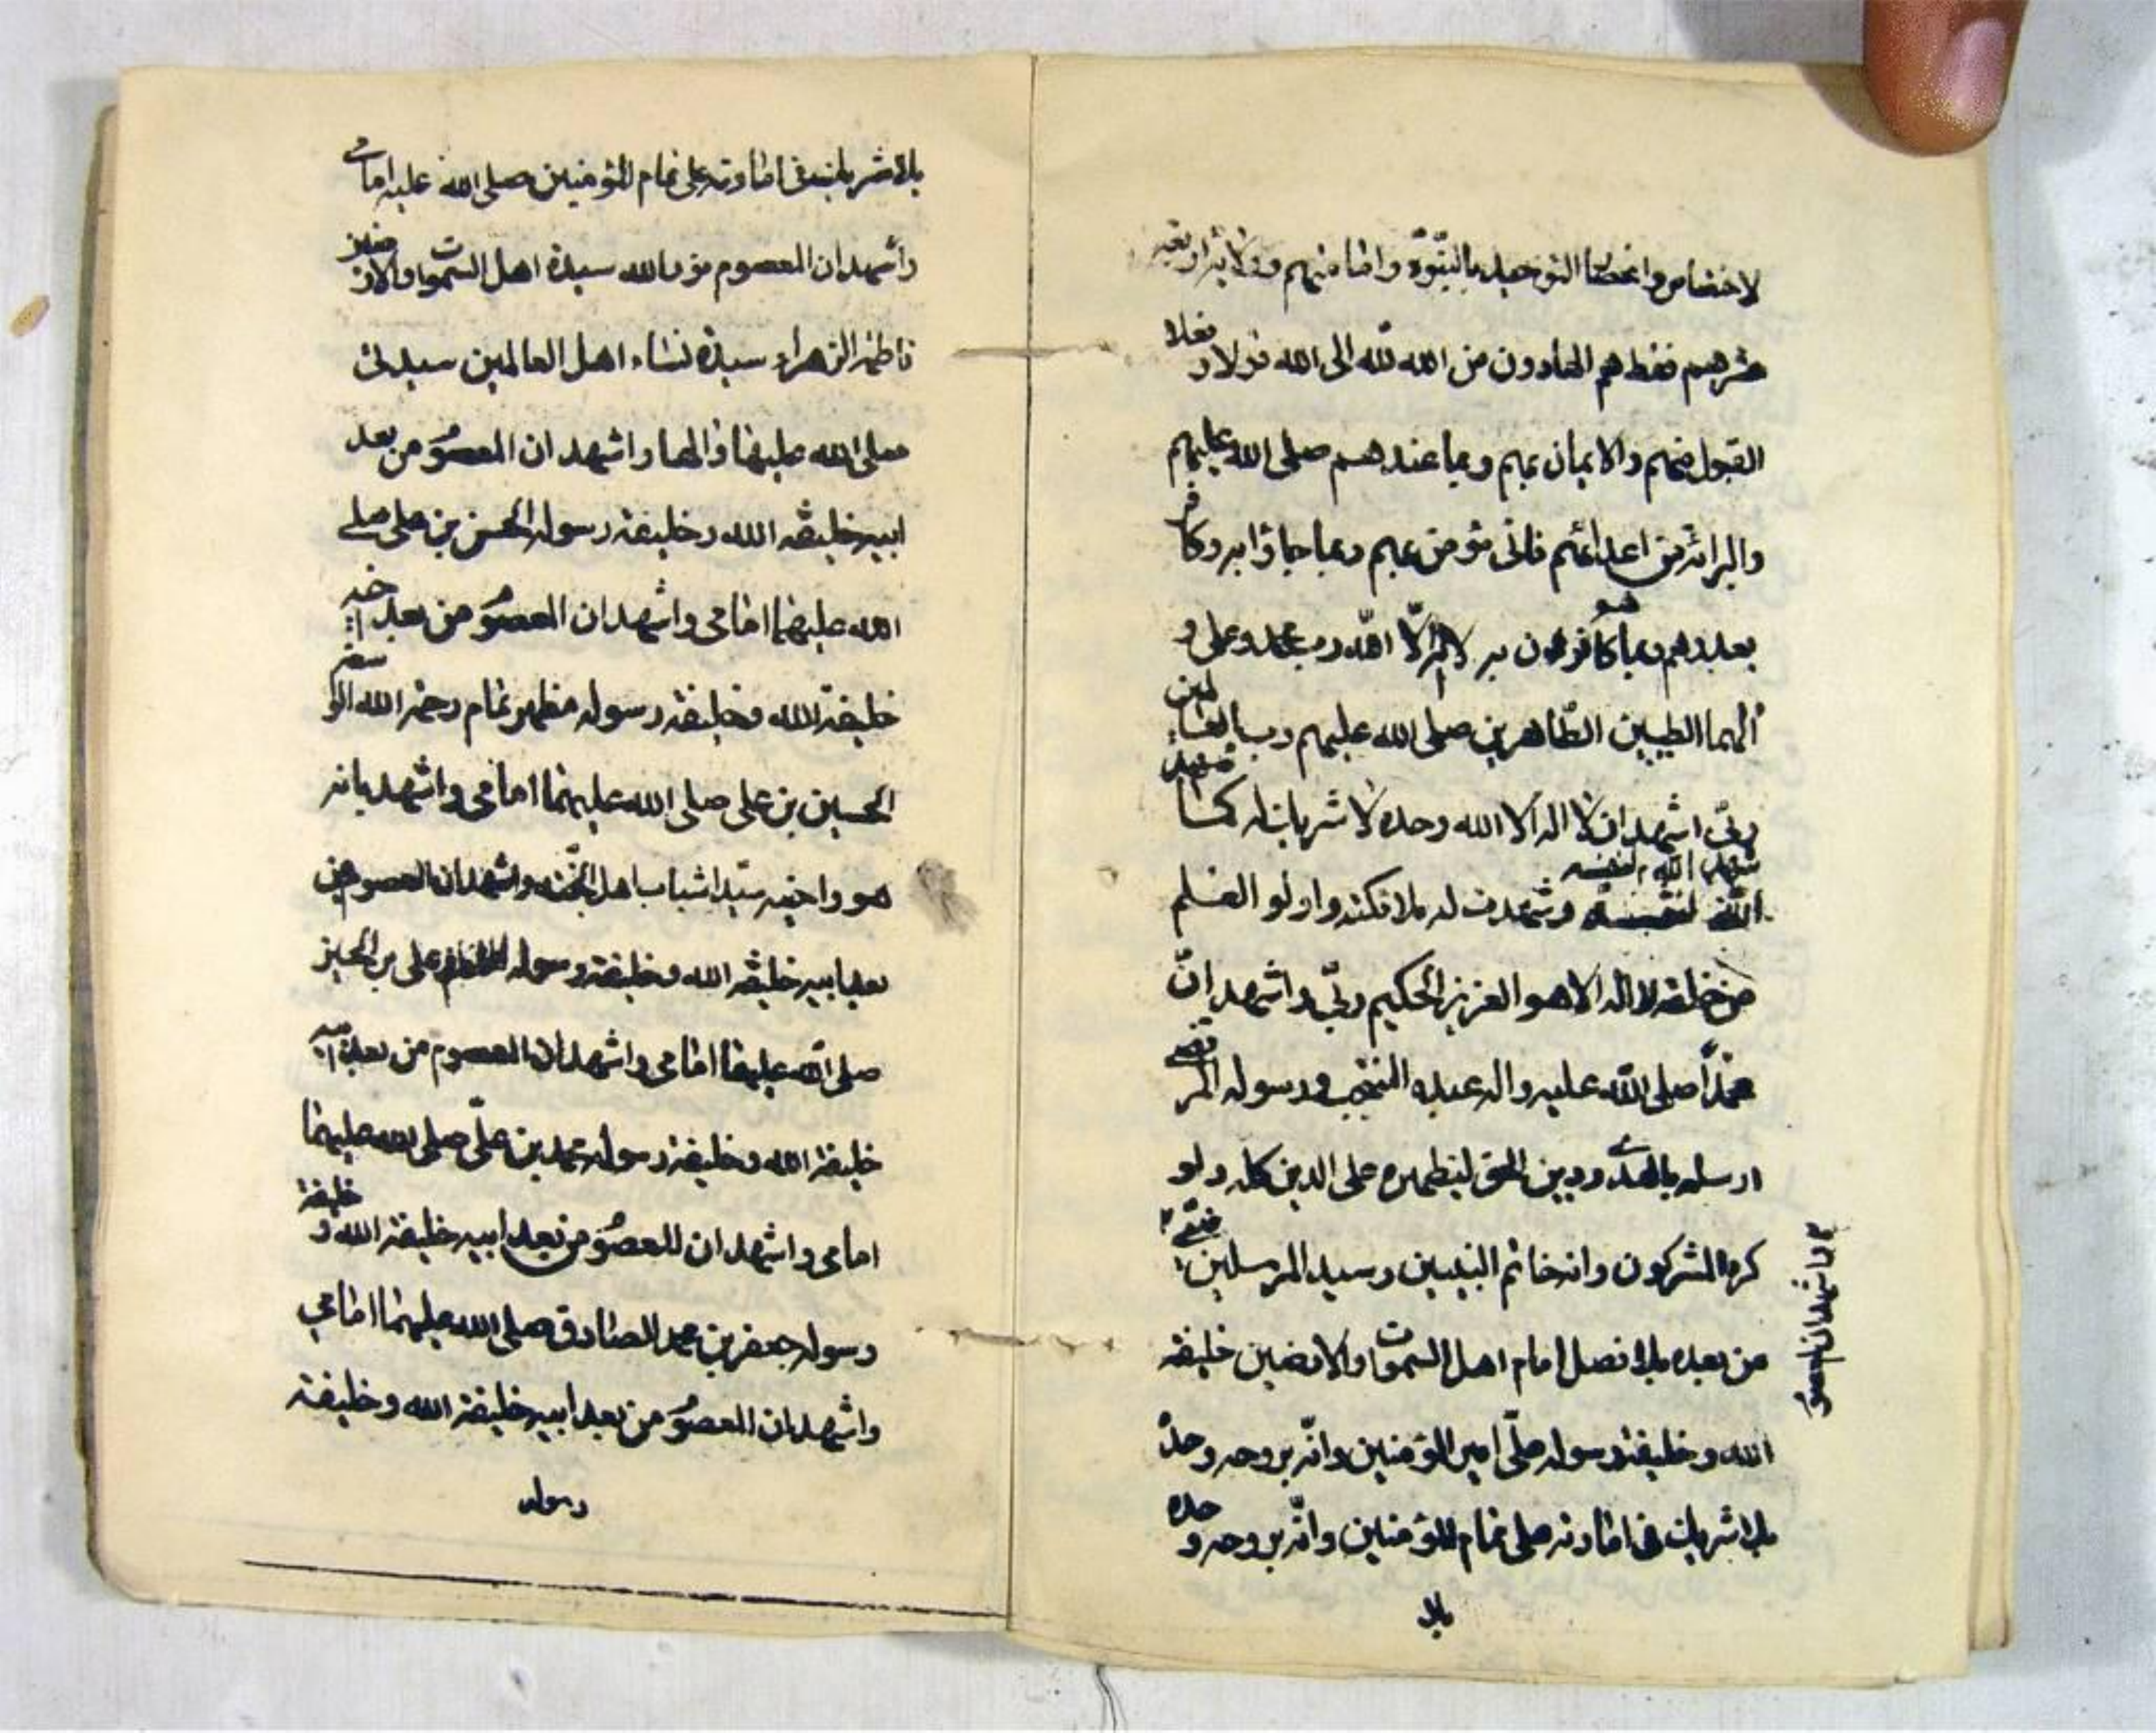 لاختصاص وانحصار التوحيد بالنبوة وامامتهم
عشرهم فقط هم الهادون من الله لله الى الله قولا و فعلا
القبول منهم والايمان بهم وبما عندهم صلى الله عليهم
والبرائة من اعدائهم فانى مؤمن بهم وبما جاؤا به وكافر
بعدوهم وبما هو كافرون به لا اله الا الله رب محمد وعلى و
آلهما الطيبين الطاهرين صلى الله عليهم رب العالمين
ربى اشهد ان لا اله الا الله وحده لا شريك له كما
شهد الله لنفسه
الله لنفسه وشهدت له ملائكته واولو العلم
من خلقه لا اله الا هو العزيز الحكيم ربى واشهد ان
محمدا صلى الله عليه واله عبده المنتجب ورسوله المرتضى
ارسله بالهدى ودين الحق ليظهره على الدين كله ولو
كره المشركون وانه خاتم النبيين وسيد المرسلين
واشهد ان المعصوم
من بعده بلا فصل امام اهل السموات والارضين خليفة
الله وخليفة رسوله على امير المؤمنين وانه بروحه وحده
بلا شريك فى امارته على تمام المؤمنين وانه بروحه وحده
بلا
بلا شريك فى امارته على تمام المؤمنين صلى الله عليه امامى
واشهد ان المعصوم من الله سيدة اهل السموات والارضين
فاطمة الزهراء سيدة نساء اهل العالمين سيدتى
صلى الله عليها والها واشهد ان المعصوم من بعد
ابيه خليفة الله وخليفة رسوله الحسن بن على صلى
الله عليهما امامى واشهد ان المعصوم من بعد اخيه
خليفة الله وخليفة رسوله مظهر تمام رحمة الله الواسعة
الحسين بن على صلى الله عليهما امامى واشهد بانه
هو واخيه سيدا شباب اهل الجنة واشهد ان المعصوم من
بعد ابيه خليفة الله وخليفة رسوله على بن الحسين
صلى الله عليهما امامى واشهد ان المعصوم من بعد ابيه
خليفة الله وخليفة رسوله محمد بن على صلى الله عليهما
امامى واشهد ان المعصوم من بعد ابيه خليفة الله و خليفة
رسوله جعفر بن محمد الصادق صلى الله عليهما امامى
واشهد ان المعصوم من بعد ابيه خليفة الله وخليفة
رسوله